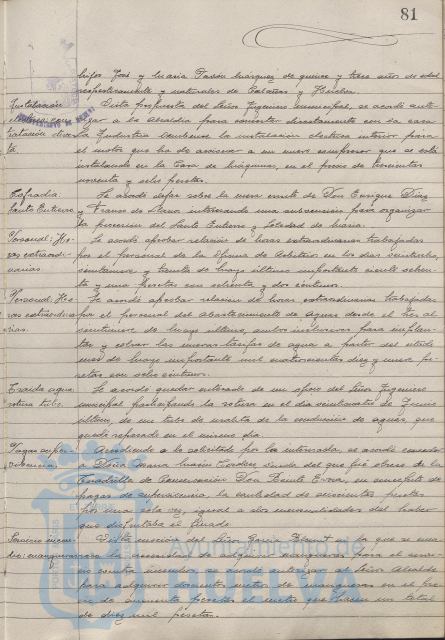 81
hijos José y María Pavón Márquez de quince y tres años de edad
respectivamente y naturales de Calañas y Huelva.
Instalación Vista propuesta del Señor Ingeniero municipal, se acordó auto-
rizar a la Alcaldía para concertar directamente con la casa
tratación direc- La Industria la instalación electrica interior para
ta. el motor que ha de accionar a un nuevo compresor que se está
instalando en la Casa de Máquinas, en el precio de trescientas
noventa y seis pesetas.
Cofradía Se acordó dejar sobre la mesa escrito de Don Enrique Díaz
Santo Entierro y Franco de Llanos interesando una subvención para organizar
la procesión del Santo Entierro y Soledad de María.
Personal: Ho- Se acordó aprobar relación de horas extraordinarias trabajadas
ras extraordi- por el personal de la Oficina de Arbitrios en los días veintiocho,
narias y treinta de Mayo último importante ciento ochen-
ta y una pesetas con ochenta y dos centimos.
Personal: Ho- Se acordó aprobar relación de horas extraordinarias trabajadas
ras extraordina- por el personal del Abastecimiento de Aguas desde el tres al
rias. de Mayo último, ambos inclusives para
y cobrar las nuevas tarifas de agua a partir del citado
mes de Mayo importante mil cuatrocientas diez y nueve pe-
setas con ocho centimos.
Traida agua Se acordó quedar enterado de un oficio del Señor Ingeniero
rotura tubo. municipal participando la rotura en el día de Junio
último, de un tubo de uralita de la conducción de aguas, que
quedó reparado en el mismo día.
Pagas super- Accediendo a lo solicitado por la interesada, se acordó conceder
vivencia. a Doña María viuda del que fué obrero de la
Cuadrilla de Conservación Don en concepto de
pagas de supervivencia, la cantidad de seiscientas pesetas
por una sola vez, igual a dos mensualidades del haber
que disfrutaba el finado.
Servicio incen- Vista moción del Señor García en la que se expo-
dio: mangueras ne la necesidad de adquirir mangueras para el servi-
cio contra incendios, se acordó autorizar al Señor Alcalde
para adquirir doscientos metros de mangueras en el pre-
cio de cincuenta pesetas el metro que hacen un total
de diez mil pesetas.
Ayuntamiento de
HUELVA